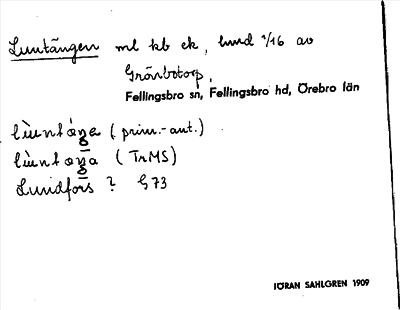 Luntängen ml kb ek, lund 1/16 av
Grönbotorp,
Fellingsbro sn, Fellingsbro hd, Örebro län
(prim.-ant.)
(TrMS)
Lundfors ? G73
JÖRAN SAHLGREN 1909